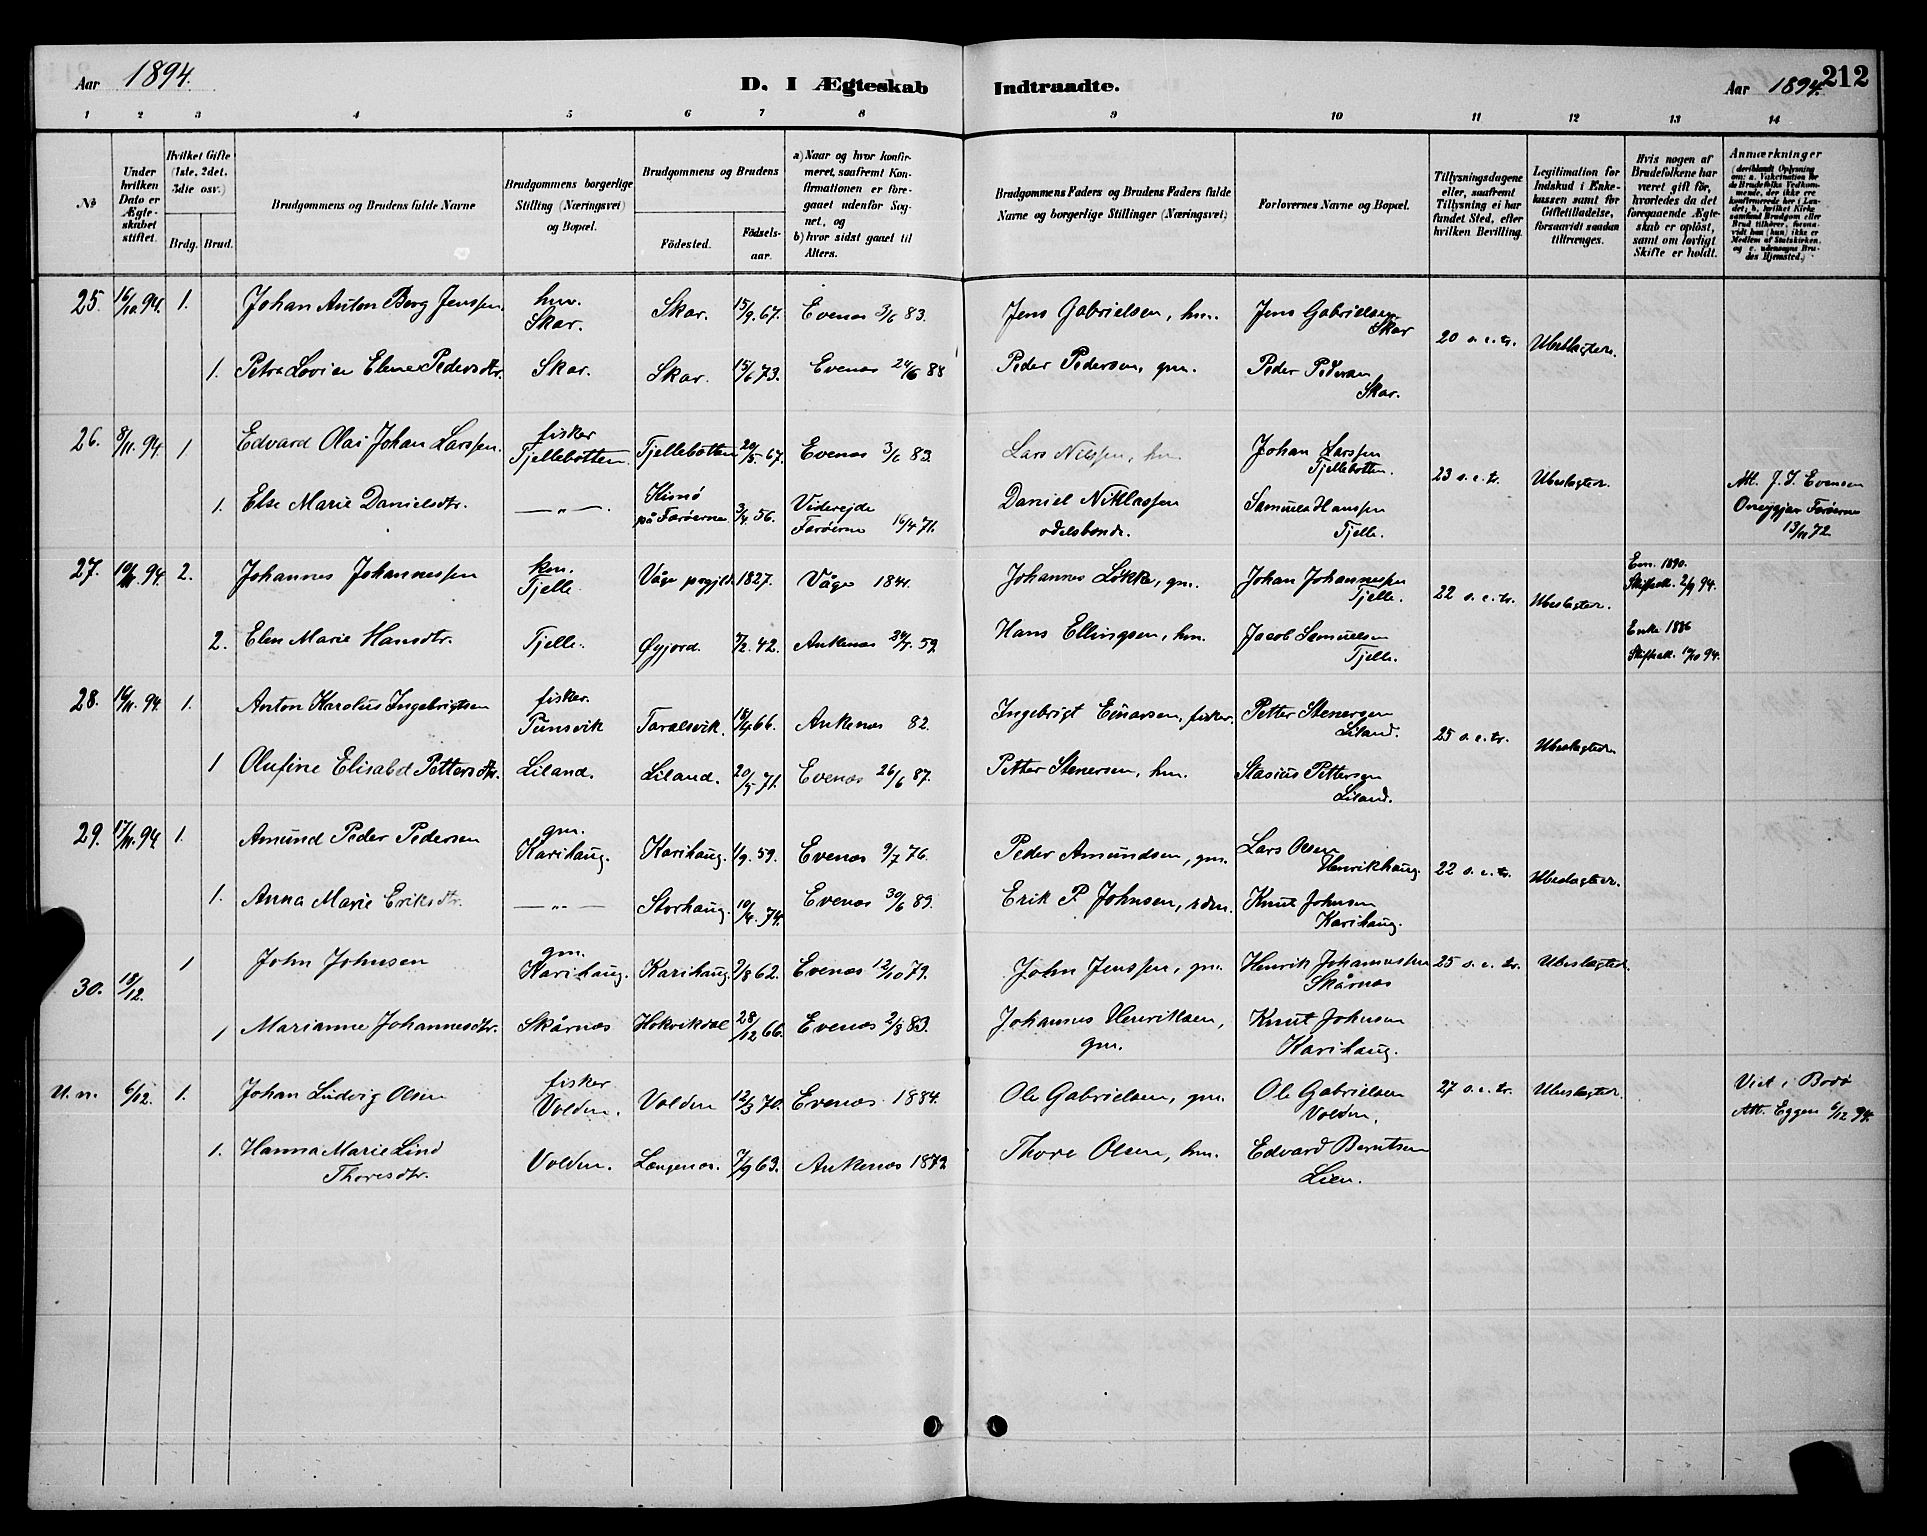 Aar 1894.
D. I Ægteskab Indtraadte.
Aar 1894. 212
1 2 3 4 5 6 7 8 9 10 11 12 13 14
No
Under hvilken Dato er Ægteskabet stiftet.
Hvilket Gifte (1ste, 2det, 3die osv.)
Brdg. Brud.
Brudgommens og Brudens fulde Navne
Brudgommens borgerlige Stilling (Næringsvei) og Bopæl.
Brudgommens og Brudens
Födested. Födselsaar.
a) Naar og hvor konfirmeret, saafremt Konfirmationen er foregaaet udenfor Sognet, og
b) hvor sidst gaaet til Alters.
Brudgommens Faders og Brudens Faders fulde Navne og borgerlige Stillinger (Næringsvei)
Forlovernes Navne og Bopæl.
Tillysningsdagene eller, saafremt Tillysning ei har fundet Sted, efter hvilken Bevilling.
Legitimation for Indskud i Enkekassen samt for Giftetilladelse, forsaavidt saadan tiltrænges.
Hvis nogen af Brudefolkene har været gift för, hvorledes da det foregaaende Ægteskab er oplöst, samt om lovligt Skifte er holdt.
Anmærkninger (deriblandt Oplysning om: a. Vakcination for de Brudefolks Vedkommende, der ikke ere konfirmerede her i Landet; b. hvilket Kirkesamfund Brudgom eller Brud tilhörer, forsaavidt han (hun) ikke er Medlem af Statskirken, og c. udensogns Brudes Hjemsted.)
25. 16/10.94. 1. Johan Anton Berg Jenssen hm. Skar. Skar. 15/9.67. Evenes 3/6 83. Jens Gabrielsen, hm. Jens Gabrielsen Skar 20 s. e. tr. Ubeslagtede.
1. Petra Lovise Elene Pedersdtr. Skar. Skar. 15/6 73. Evenes 24/6 88 Peder Pedersen, gm. Peder Pedersen Skar.
26. 8/11.94. 1 Edvard Olai Johan Larssen. fisker Tjellebotten. Tjellebotten 20/5.67. Evenes 3/6 83. Lars Nilssen, hm. Johan Larssen Tjellebotten. 23 s. e. tr. Ubeslagtede.
1. Else Marie Danielsdtr. — „ — på Farøerne 3/4 56. Viderejde Farøerne 16/4 71. Daniel Niklassen odelsbonde. Samuel Hanssen Tjelle. Att. J. I. Evensen Farøerne 13/11 72.
27. 10/11.94. 2. Johannes Johannessen Tjelle Våge prgjld. 1827. Våge 1844. Johannes Løkke, gm. Johan Johannessen Tjelle. 22 s. e. tr. Ubeslagtede. Em. 1890. Skifteatt. 2/9 94.
2. Elen Marie Hansdtr. Tjelle. Øyjord. 7/2.42. Ankenes 59 Hans Ellingsen, hm. Jacob Samuelsen Tjelle. Enke 1886 Skifteatt. 10/10 94.
28. 16/11.94. 1. Anton Karolus Ingebrigtsen fisker. Punsvik Taralsvik. 18/4 66. Ankenes 82. Ingebrigt Einarsen, fisker. Petter Stenersen Liland. 25 s. e. tr. Ubeslagtede
1 Olufine Elisabet Pettersdtr. Liland. Liland. 20/5 71. Evenes 26/6 87. Petter Stenersen, hm. Stasius Pettersen Liland.
29. 17/11.94 1. Amund Peder Pedersen gm. Karihaug. Karihaug. 1/9.59. Evenes 9/7 76. Peder Amundsen, gm. Lars Olsen Henrikhaug. 22 s. e. tr. Ubeslagtede.
1. Anna Marie Eriksdtr. — „ — Storhaug. 10/4.74. Evenes 30/6 89. Erik P. Johnsen, Knut Johnsen Karihaug.
30. 18/12. 1 John Johnsen gm. Karihaug. Karihaug. 2/8 62. Evenes 12/10 79. John Jenssen, gm. Henrik Johannessen Skårnes 25 s. e. tr. Ubeslagtede.
1 Marianne Johannesdtr. Skårnes Hokvikdal 28/12 66. Evenes 2/8 83. Johannes Henriksen, gm. Knut Johnsen Karihaug.
U. n. 6/12. 1. Johan Ludvig Olsen fisker Volden. Volden 12/3 70. Evenes 1884. Ole Gabrielsen, gm. Ole Gabrielsen Volden. 27 s. e. tr. Ubeslagtede. Viet i Bodø Att. Eggen 6/12 94.
1. Hanna Marie Lind Thoresdtr. Volden. Langenes. 7/9 63. Ankenes 1879 Thore Olsen, hm. Edvard Berntsen Lien.